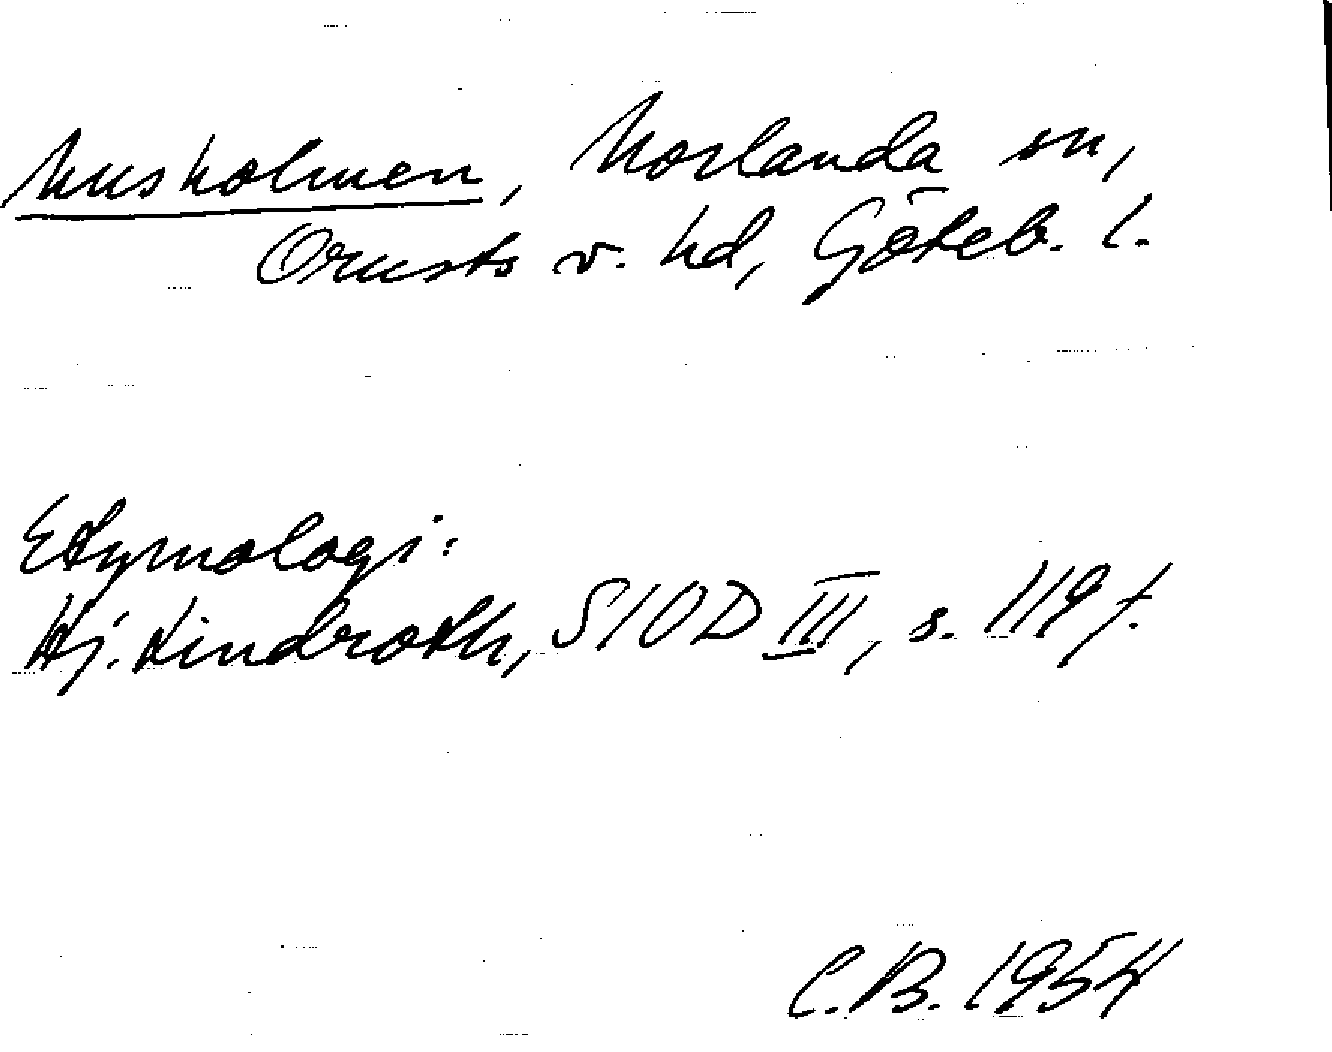 Musholmen, Morlanda sn,
Orusts v. hd, Göteb. l.
Etymologi:
Hj. Lindroth, SIOD III, s. 119 f.
C.B. 1954